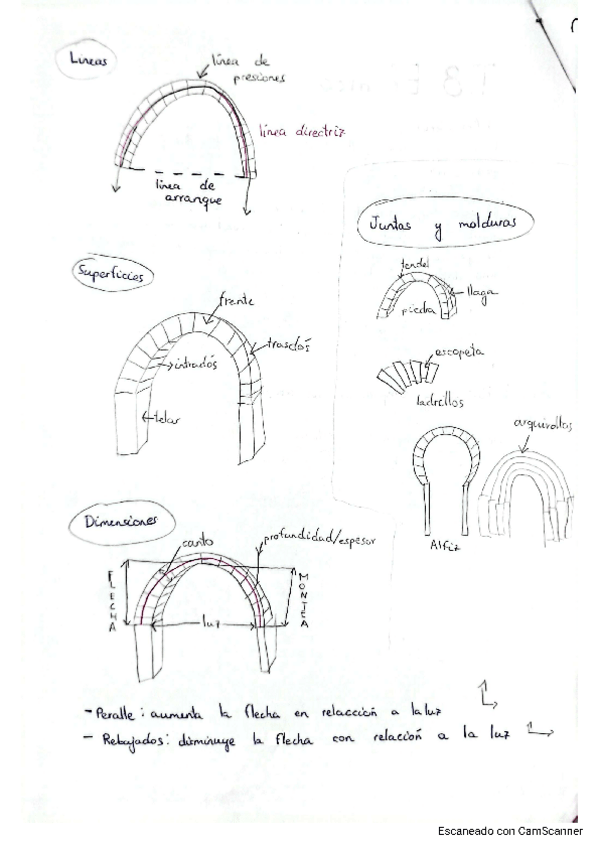 Líneas
línea de
presiones
línea directriz
línea de
arranque
Superficies
frente
trasdós
intradós
telar
Juntas y molduras
tendel
llaga
piedra
escopeta
ladrillos
arquivoltas
Alfiz
Dimensiones
canto
profundidad/espesor
FLECHA
luz
MONTEA
- Peralte: aumenta la flecha en relacción a la luz
- Rebajados: disminuye la flecha con relación a la luz
Escaneado con CamScanner